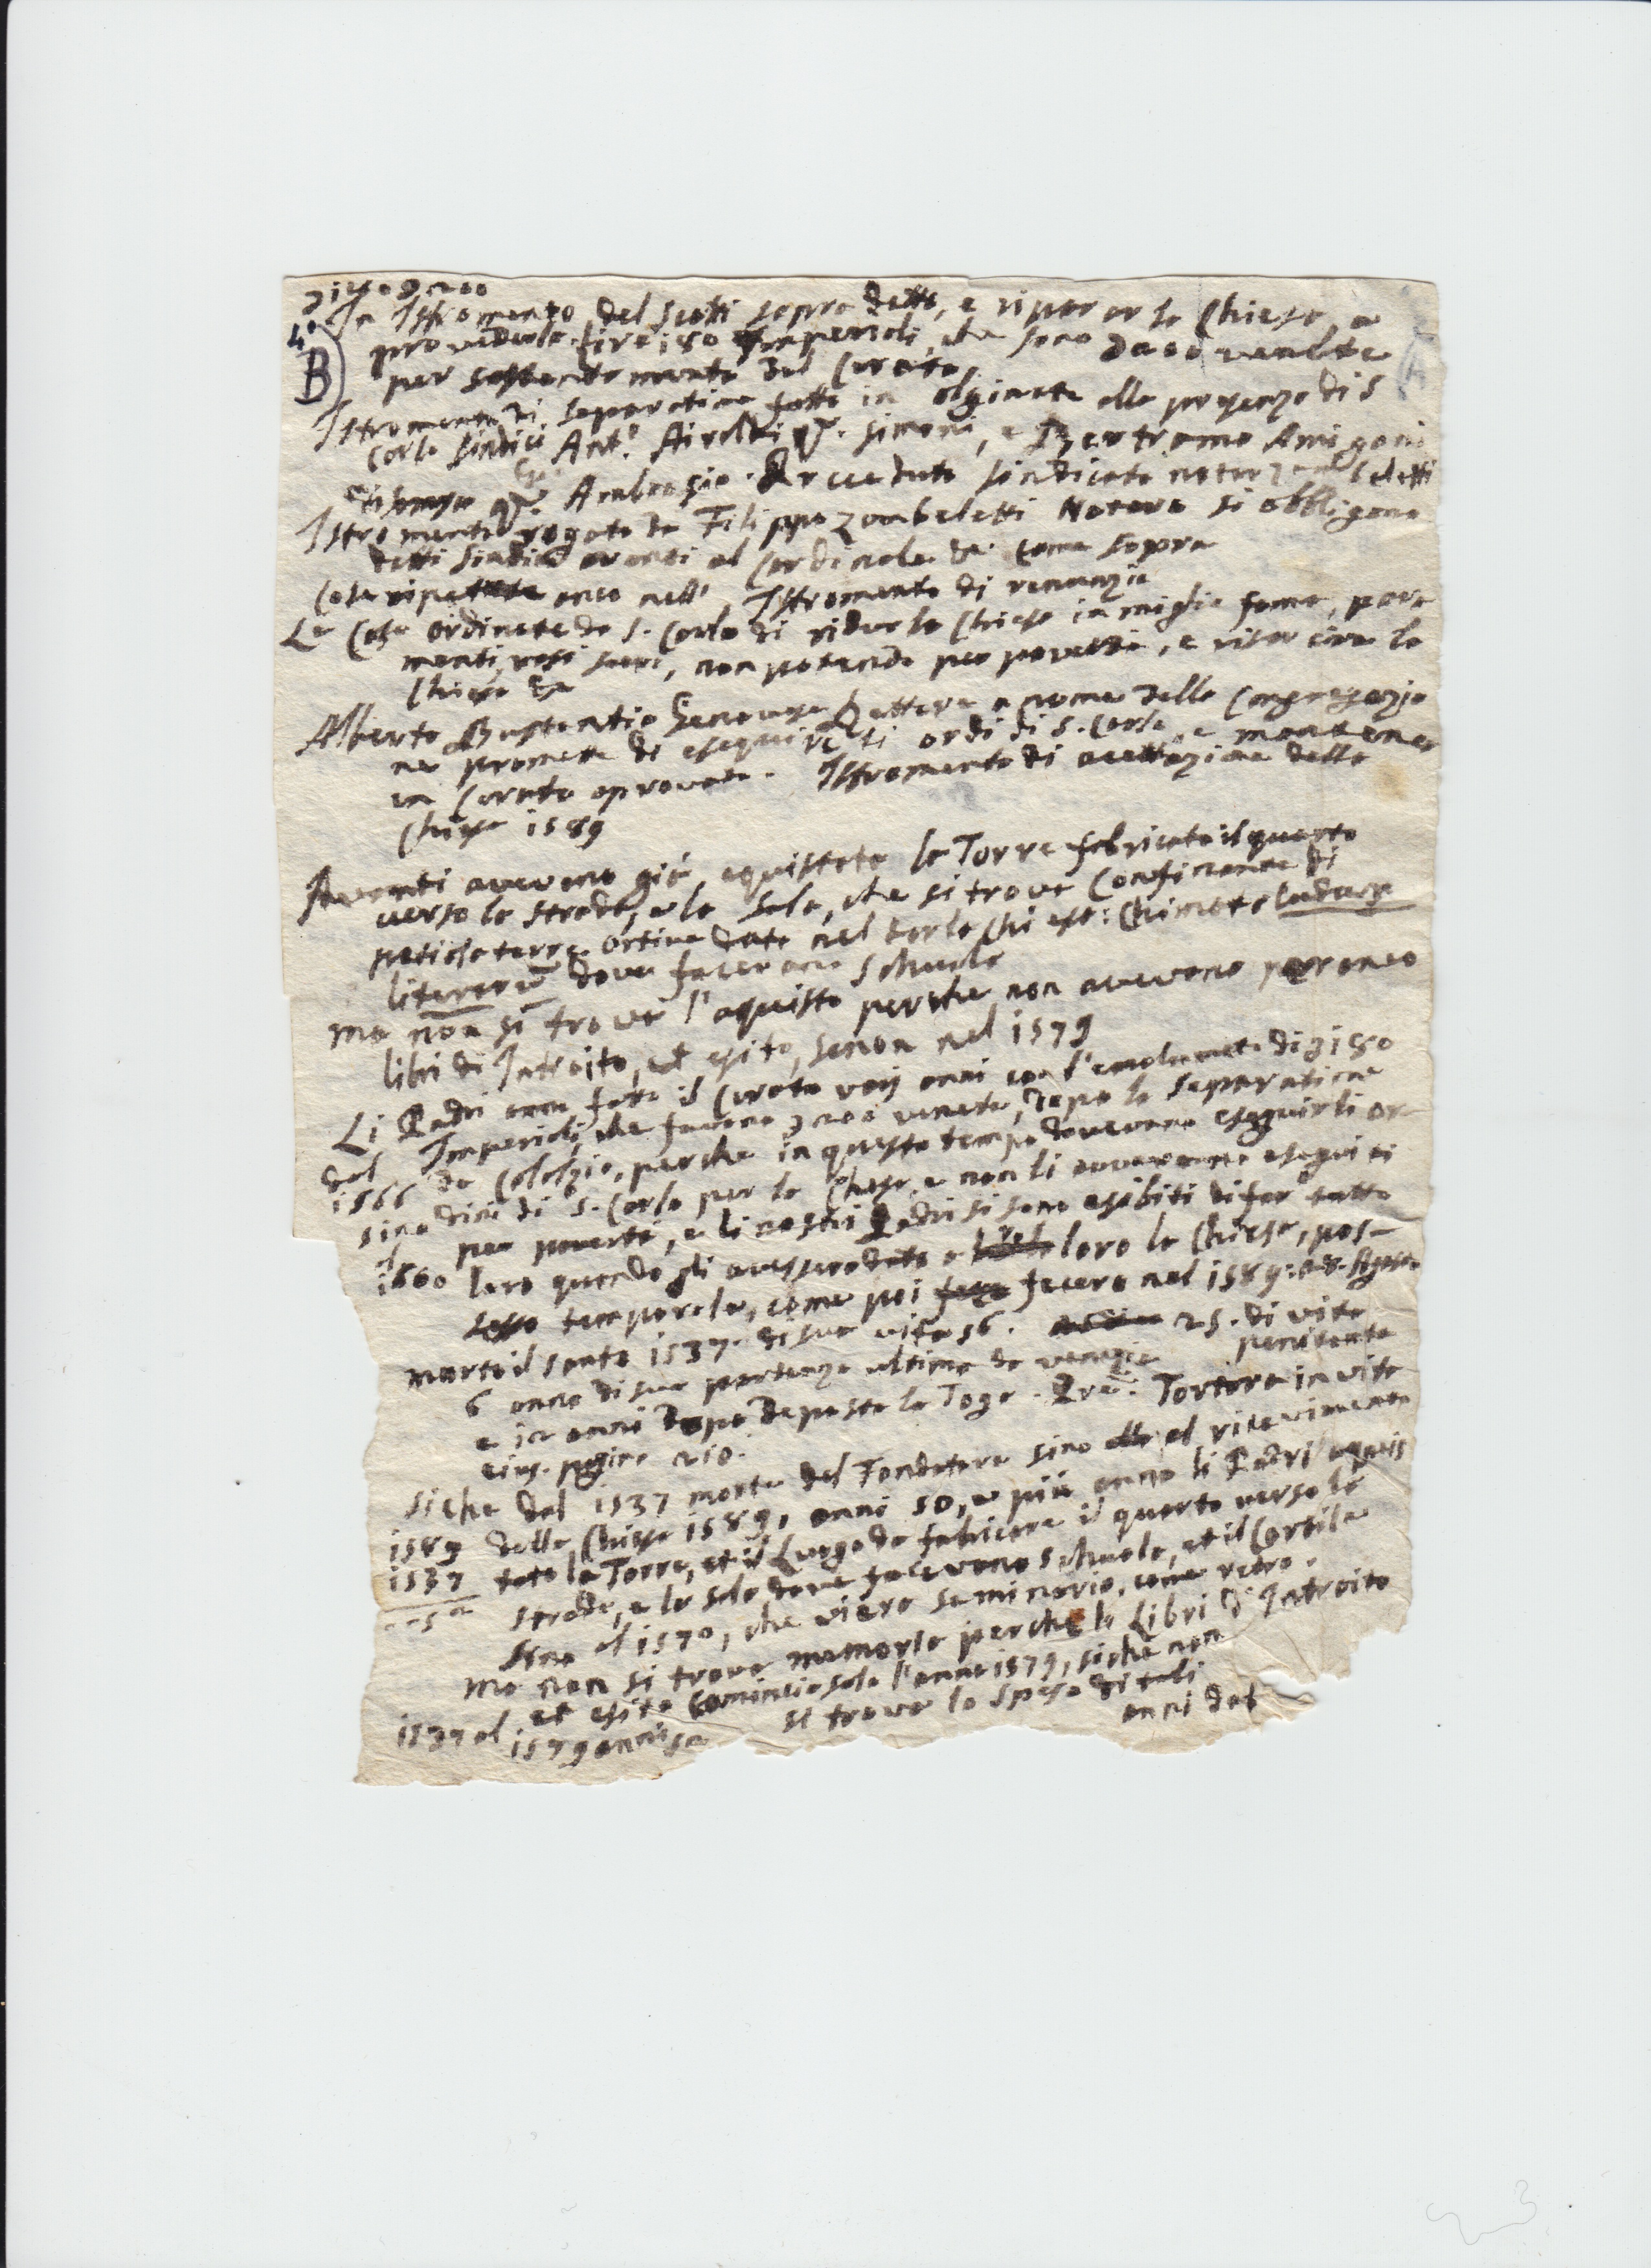 In Istromento del Scotti sopra detto, e riparar la Chiesa, e
4°
B
provederla lire 180 Imperiali, che sono venete
per sostentamento del Curato
Istromento di separatione fatto in olginate alla presenza di S
Carlo Sindici Ant.° Airoldi q. Simoni, e Bertramo Amigoni
q. Ambrosio. Sindicato
Istromento rogato da Filippo Zambeletti Notaro si obbligano
detti Sindici avanti al Cardinale &. come sopra
Cosa ripetuta anco nell' Istromento di renunzia
Le Cose ordinate da S. Carlo di ridur la Chiesa in miglio forma, pave
menti, vasi sacri, non potendo per povertà, e
Chiesa &
Alberto Genovese a nome della Congregazio
ne promette di eseguire li ordi di S. Carlo, e mantener
un Curato aprovato. Istromento di acettazione della
Chiesa 1589
Avanti avevano già aquistata la Torre fabricato il quarto
verso la strada, e la Sala, che si trova Confinante di
petiola terre ortive nel chimato
literarũ dove facevano Schuola
ma non si trova l'aquisto perche non avevano per anco
libri di Introito, et esito, senon nel 1579
Li Padri anno fatto il Curato varj anni con l'emolumeto di 180
Imperiali, che fanno venete, dopo la separatione
dal
1566 da Calolzio, perche in questo tempo dovevano eseguir li or-
sino dini di S. Carlo per la Chiesa, e non li avevano eseguiti
al per povertà, e li nostri Padri si sono esibiti di far tutto
loro quando gli avessero dato a loro la Chiesa, pos-
sesso temporale, come poi fecero nel 1589: a 8. Agosto
morto il santo 1537. di sua vita 56. 25. di vita
penitente
6 anno di sua partenza ultima da venezia
e 12 anni dopo deposta la Toga. Tortora in vita
eius. pagina 210.
Siche dal 1537 morte del Fondatore sino al ricevimento
1589 della Chiesa 1589, anni 50, e più anno li Padri aquis
1537 tato la Torre, et il Luogo da fabricare il quarto verso la
strada, e la sala dove facevano Schuola, et il Cortile
Sino al 1570, che viera seminario, come retro.
ma non si trova memoria perche li Libri d' Introito
et esito Comincia solo l'anno 1579, siche non
si trova la spesa di tali
anni dal
1537 al 1579 anni